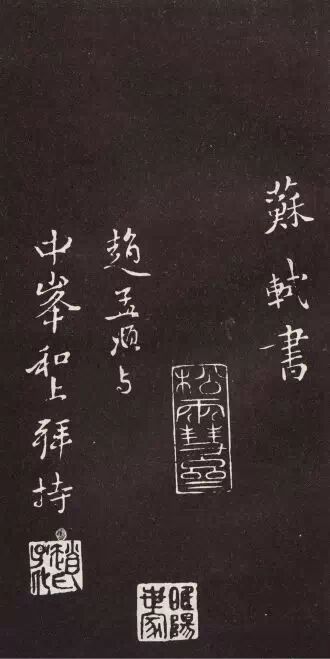 蘇軾書
趙孟順与
中峯和上拜持
松雪齋
趙氏子昂
睢陽世家